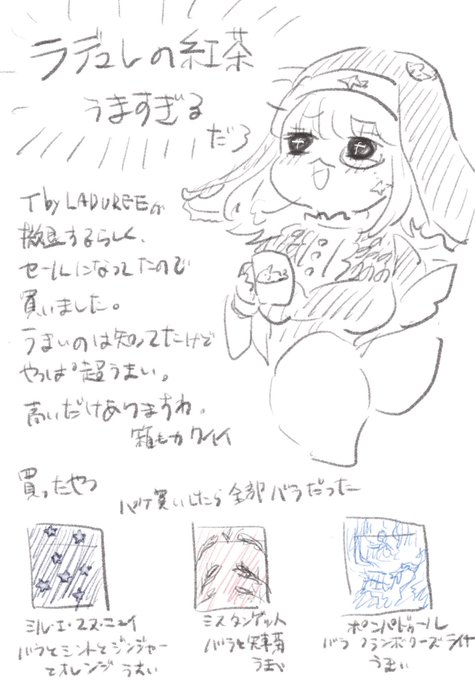 ラデュレの紅茶
うますぎる
だろ
T by LADUREEが
撤退するらしく、
セールになってたので
買いました。
うまいのは知ってたけど
やっぱ超うまい。
高いだけありますね。
箱もカワイイ
買ったやつ
パケ買いしたら全部バラだった
ミル・エ・ユヌ・ニュイ
バラとミントとジンジャー
とオレンジ うまい
ミスタンゲット
バラと
うまい
ポンパドゥール
バラ フランボワーズ
うまい